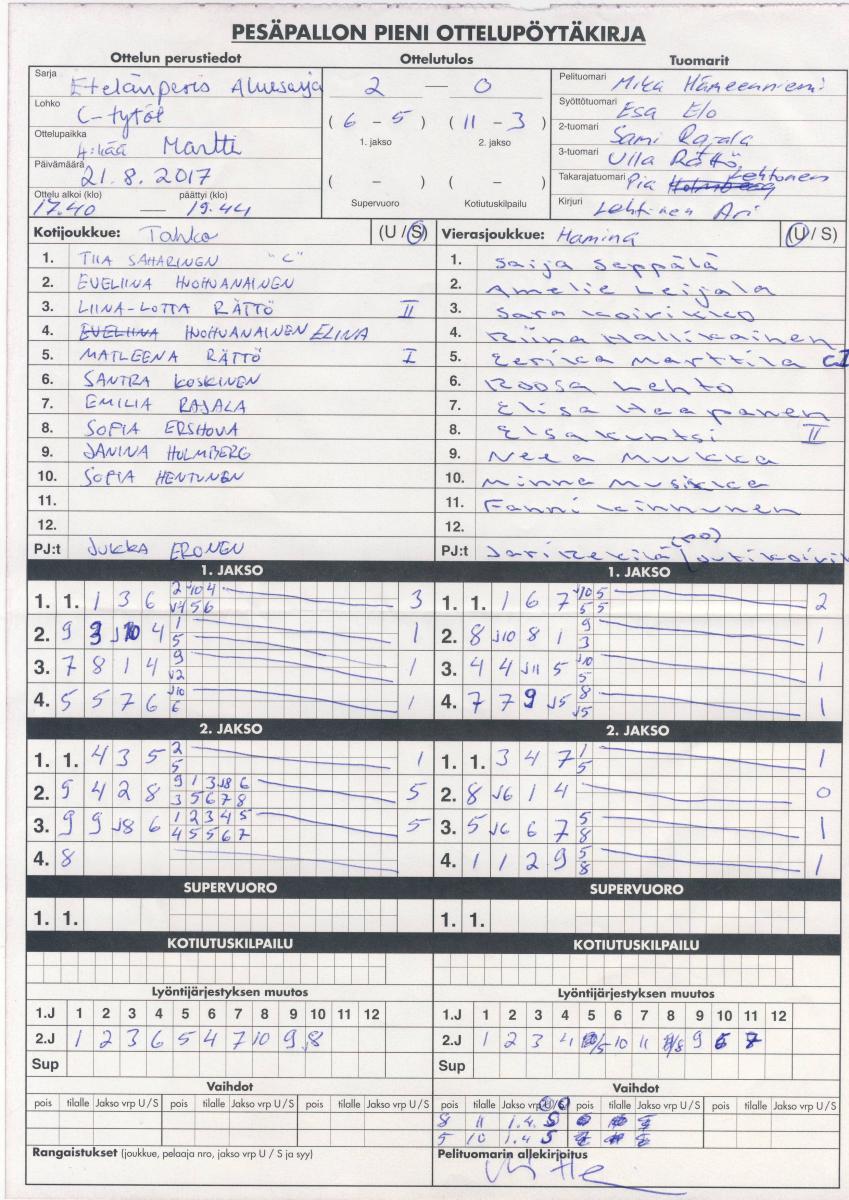 PESÄPALLON PIENI OTTELUPÖYTÄKIRJA
Ottelun perustiedot
Ottelutulos
Tuomarit
Sarja Etelänperis Aluesarja
Lohko C-tytöt
Ottelupaikka Martti
Päivämäärä 21.8.2017
Ottelu alkoi (klo) päättyi (klo)
17.40 — 19.44
2 — 0
( 6 - 5 ) ( 11 - 3 )
1. jakso 2. jakso
( - ) ( - )
Supervuoro Kotiutuskilpailu
Pelituomari Mika Hämeenniemi
Syöttötuomari Esa Elo
2-tuomari Sami Rajala
3-tuomari Ulla Rättö
Takarajatuomari Pia Lehtonen
Kirjuri Lehtinen Ari
Kotijoukkue: Tahko (U / S)
1. TIIA SAHARINEN "C"
2. EVELIINA HUOHVANAINEN
3. LIINA-LOTTA RÄTTÖ II
4. EVELIINA HUOHVANAINEN ELINA
5. MATLEENA RÄTTÖ I
6. SANTRA KOSKINEN
7. EMILIA RAJALA
8. SOFIA ERSHOVA
9. JANINA HOLMBERG
10. SOFIA HENTUNEN
11.
12.
PJ:t JUKKA ERONEN
Vierasjoukkue: Hamina (U / S)
1. Saija Seppälä
2. Amelie Leijala
3. Sara Koirikko
4. Riina Hallikainen
5. Eerika Marttila C I
6. Roosa Lehto
7. Elisa Haapanen
8. Elsa Kuntsi II
9. Neea Muukka
10. Minna Musikka
11. Fanni Kinnunen
12.
PJ:t Jari Kekilä (po)
1. JAKSO
1. 1. 1 3 6 2 J10 4 3
J4 5 6
2. 9 3 J10 4 1 1
5
3. 7 8 1 4 9 1
J2
4. 5 5 7 6 J10 1
6
1. JAKSO
1. 1. 1 6 7 J10 5 2
5 5
2. 8 J10 8 1 9 1
3
3. 4 4 J11 5 J10 1
5
4. 7 7 9 J5 8 1
J5
2. JAKSO
1. 1. 4 3 5 2 1
5
2. 9 4 2 8 9 1 3 J8 6 5
3 5 6 7 8
3. 9 9 J8 6 1 2 3 4 5 5
4 5 5 6 7
4. 8
2. JAKSO
1. 1. 3 4 7 1 1
5
2. 8 J6 1 4 0
3. 5 J6 6 7 5 1
8
4. 1 1 2 9 5 1
8
SUPERVUORO
1. 1.
SUPERVUORO
1. 1.
KOTIUTUSKILPAILU
KOTIUTUSKILPAILU
Lyöntijärjestyksen muutos
1.J 1 2 3 4 5 6 7 8 9 10 11 12
2.J 1 2 3 6 5 4 7 10 9 J8
Sup
Lyöntijärjestyksen muutos
1.J 1 2 3 4 5 6 7 8 9 10 11 12
2.J 1 2 3 4 /5 10 11 /8 9 6 7
Sup
Vaihdot
pois tilalle Jakso vrp U / S pois tilalle Jakso vrp U / S pois tilalle Jakso vrp U / S
Vaihdot
pois tilalle Jakso vrp U / S pois tilalle Jakso vrp U / S pois tilalle Jakso vrp U / S
8 11 1.4. S
5 10 1.4 S
Rangaistukset (joukkue, pelaaja nro, jakso vrp U / S ja syy)
Pelituomarin allekirjoitus